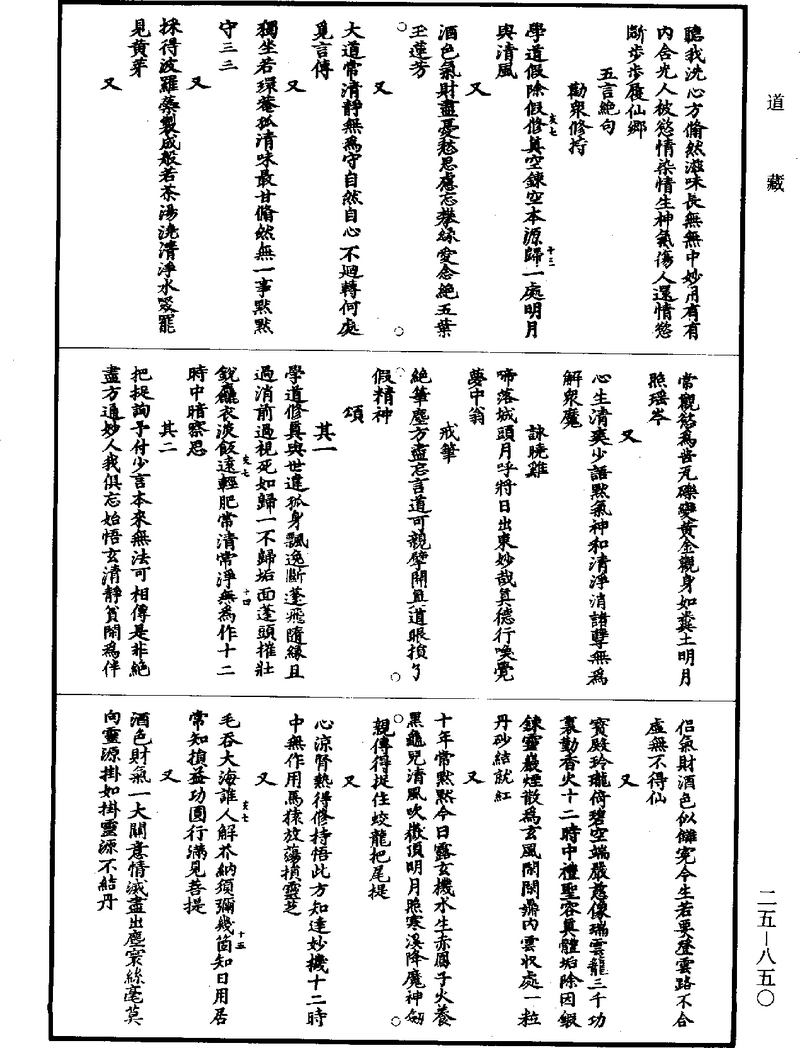 道藏
聽我洗心方翛然滋味長無無中妙用有有
內含光人被慾情染情生神氣傷人還情慾
斷步步履仙鄉
五言絕句
勸衆修持
學道假除假修真空鍊空本源歸一處明月
與清風
又
酒色氣財盡憂愁思慮忘攀緣愛念絕五葉
玉蓮芳
又
大道常清靜無為守自然自心不迴轉何處
覓言傳
又
獨坐若環菴孤清味最甘翛然無一事默默
守三三
又
採得波羅藥製成般若茶湯澆清淨水啜罷
見黃芽
又
常觀慾為齒瓦礫變黃金觀身如糞土明月
照瑤岑
又
心生清爽少語默氣神和清淨消諸孽無為
解衆魔
詠曉雞
啼落城頭月呼將日出東妙哉真德行喚覺
夢中翁
戒筆
絕筆塵方盡忘言道可親擘開無道眼損了
假精神
頌
其一
學道修真與世違孤身飄逸斷蓬飛隨緣且
過消前過視死如歸一不歸垢面蓬頭摧壯
銳麤衣淡飯遠輕肥常清常淨無為作十二
時中暗察思
其二
把捉詢予付少言本來無法可相傳是非絕
盡方通妙人我俱忘始悟玄清靜貧閑為伴
侶氣財酒色似讎冤今生若要登雲路不合
虛無不得仙
又
寶殿玲瓏倚碧空端嚴慈像瑞雲籠三千功
裏勤香火十二時中禮聖容真體垢除因鍛
鍊靈巖煙散為玄風閑閑鼎內雲收處一粒
丹砂結就紅
又
十年常默默今日露玄機水生赤鳳子火養
黑龜兒清風吹嶽頂明月照寒溪降魔神劒
親傳得捉住蛟龍把尾提
又
心涼腎熱得修持悟此方知達妙機十二時
中無作用馬猿放蕩損靈芝
又
毛吞大海誰人解芥納須彌幾箇知日用居
常知損益功圓行滿見菩提
又
酒色財氣一大關意情滅盡出塵寰絲毫莫
向靈源掛如掛靈源不結丹
亥七
十三
亥七
十四
亥七
十五
二五—八五〇